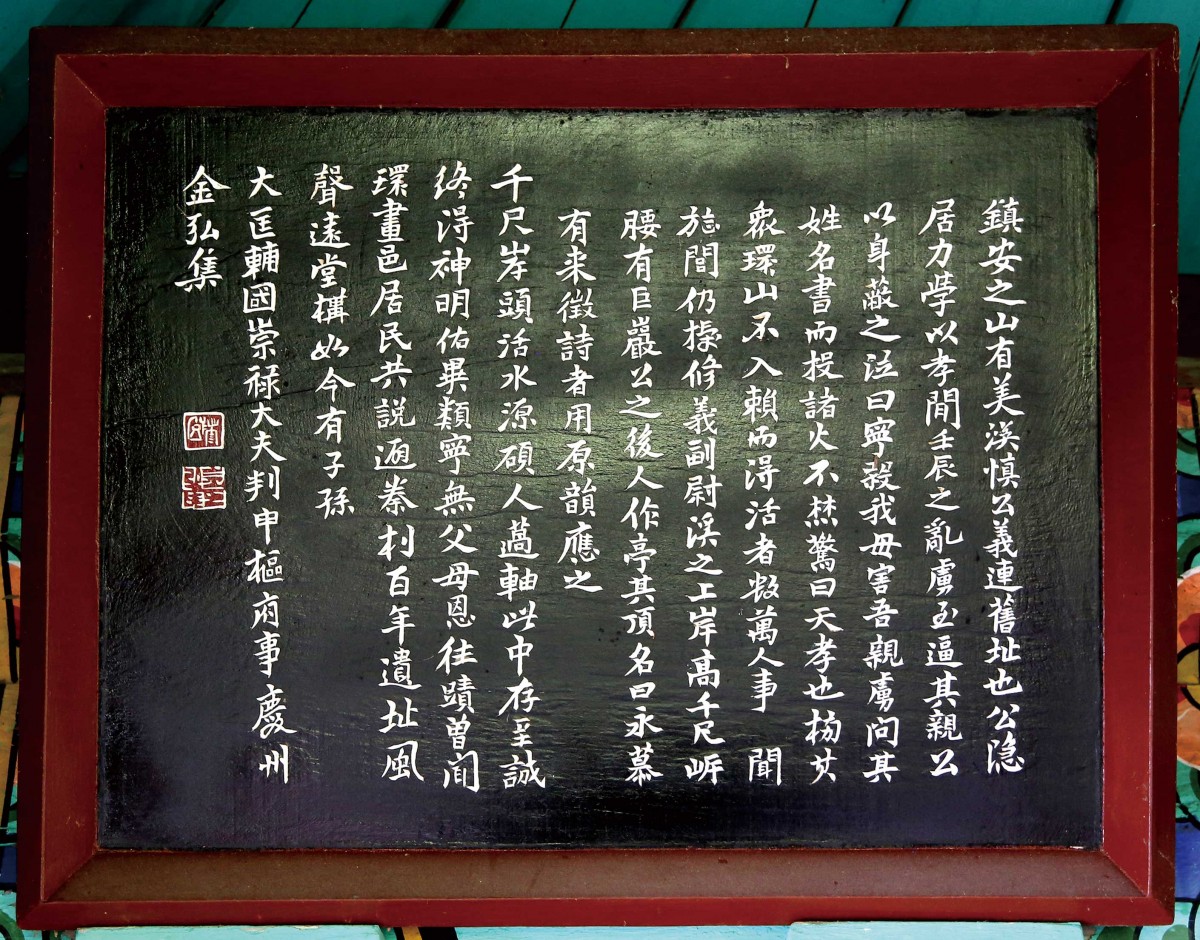 鎮安之山有美溪愼公義連舊址也公隐
居力學以孝聞壬辰之亂虜至逼其親公
以身蔽之泣曰寧殺我毋害吾親虜问其
姓名書而投諸火不焚驚曰天孝也榜其
衆環山不入賴而得活者数萬人事 聞
旌閭仍授修義副尉溪之上岸高千尺岍
腰有巨巖公之後人作亭其頂名曰永慕
有来徵詩者用原韻應之
千尺岸頭活水源碩人薖軸此中存至誠
终得神明佑異類寧無父母恩往蹟曽闻
環畫邑居民共説迺桊村百年遺址風
聲遠堂構如今有子孫
大匡輔國崇禄大夫判中樞府事慶州
金弘集